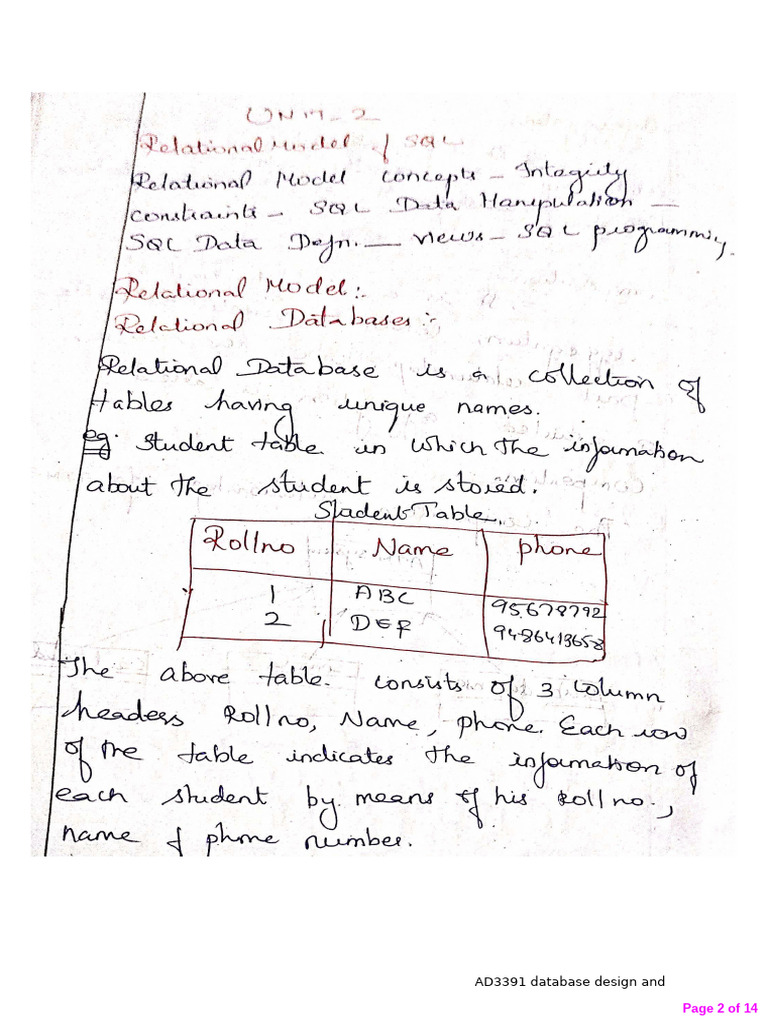 UNIT-2
Relational Model & SQL
Relational Model concepts - Integrity
constraints - SQL Data Manipulation -
SQL Data Defn. - views - SQL programming.
Relational Model:-
Relational Databases:-
Relational Database is a collection of
tables having unique names.
eg. Student table in which the information
about the student is stored.
Student Table.
Rollno Name phone
1 ABC 95678792
2 DEF 9486413658
The above table consists of 3 column
headers Rollno, Name, phone. Each row
of the table indicates the information of
each student by means of his Rollno.,
name & phone number.
AD3391 database design and
Page 2 of 14